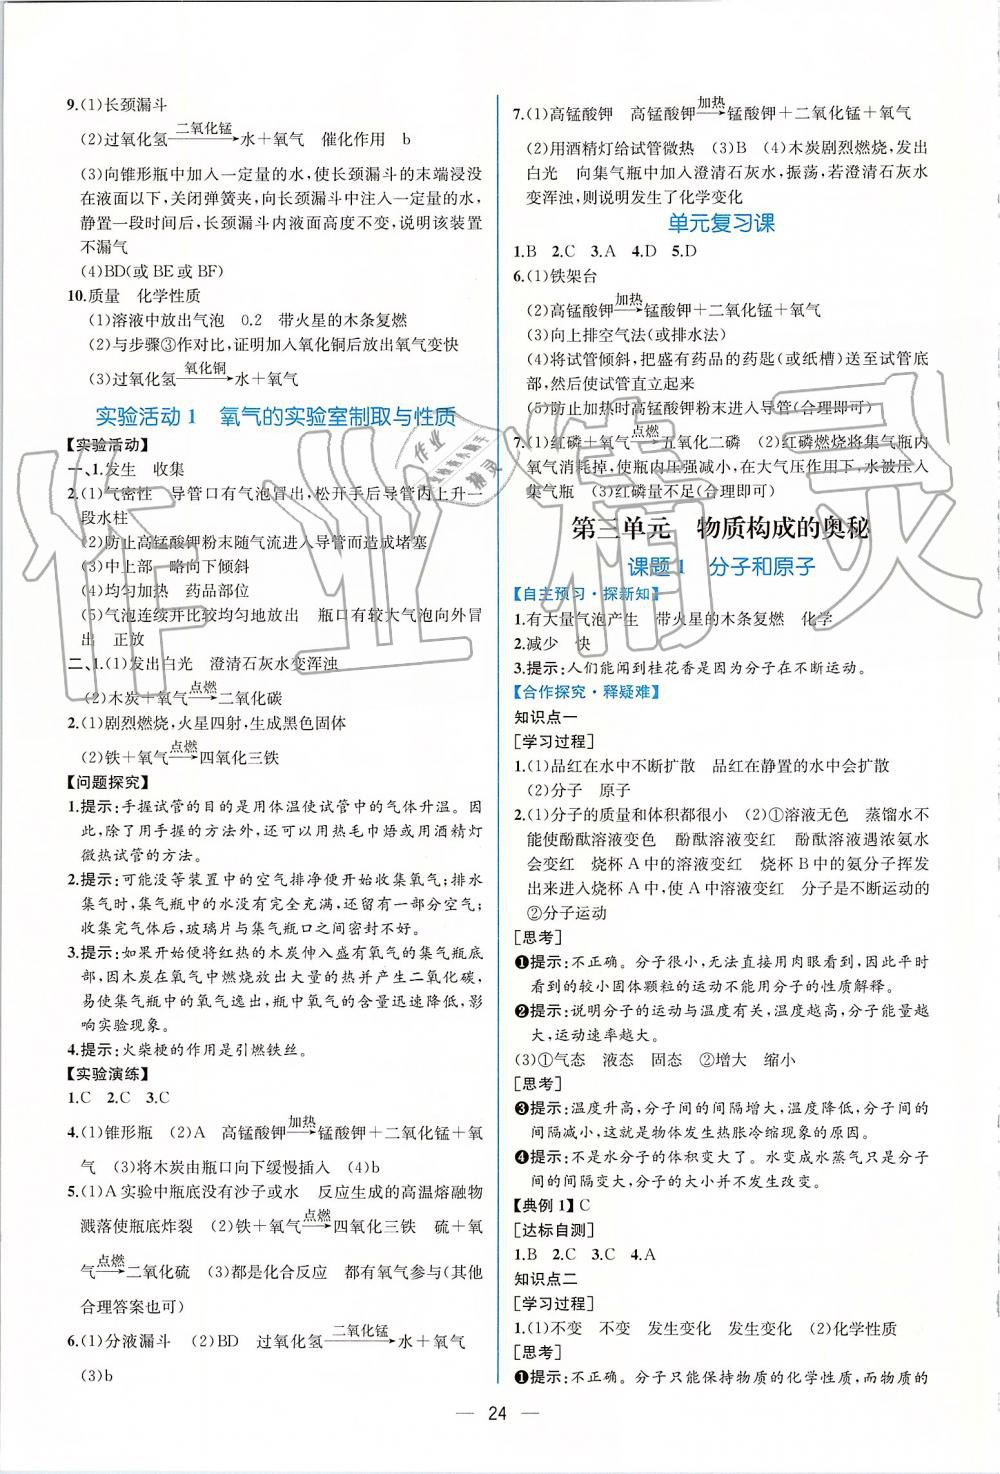 9.(1)长颈漏斗
(2)过氧化氢 二氧化锰→ 水＋氧气　催化作用　b
(3)向锥形瓶中加入一定量的水,使长颈漏斗的末端浸没
在液面以下,关闭弹簧夹,向长颈漏斗中注入一定量的水,
静置一段时间后,长颈漏斗内液面高度不变,说明该装置
不漏气
(4)BD(或 BE 或 BF)
10.质量　化学性质
(1)溶液中放出气泡　0.2　带火星的木条复燃
(2)与步骤③作对比,证明加入氧化铜后放出氧气变快
(3)过氧化氢 氧化铜→ 水＋氧气
实验活动 1　氧气的实验室制取与性质
【实验活动】
一、1.发生　收集
2.(1)气密性　导管口有气泡冒出,松开手后导管内上升一
段水柱
(2)防止高锰酸钾粉末随气流进入导管而造成堵塞
(3)中上部　略向下倾斜
(4)均匀加热　药品部位
(5)气泡连续并比较均匀地放出　瓶口有较大气泡向外冒
出　正放
二、1.(1)发出白光　澄清石灰水变浑浊
(2)木炭＋氧气 点燃→ 二氧化碳
2.(1)剧烈燃烧,火星四射,生成黑色固体
(2)铁＋氧气 点燃→ 四氧化三铁
【问题探究】
1.提示:手握试管的目的是用体温使试管中的气体升温。因
此,除了用手握的方法外,还可以用热毛巾焐或用酒精灯
微热试管的方法。
2.提示:可能没等装置中的空气排净便开始收集氧气;排水
集气时,集气瓶中的水没有完全充满,还留有一部分空气;
收集完气体后,玻璃片与集气瓶口之间密封不好。
3.提示:如果开始便将红热的木炭伸入盛有氧气的集气瓶底
部,因木炭在氧气中燃烧放出大量的热并产生二氧化碳,
易使集气瓶中的氧气逸出,瓶中氧气的含量迅速降低,影
响实验现象。
4.提示:火柴梗的作用是引燃铁丝。
【实验演练】
1.C　2.C　3.C
4.(1)锥形瓶　(2)A　高锰酸钾 加热→ 锰酸钾＋二氧化锰＋氧
气　(3)将木炭由瓶口向下缓慢插入　(4)b
5.(1)A 实验中瓶底没有沙子或水　反应生成的高温熔融物
溅落使瓶底炸裂　(2)铁＋氧气 点燃→ 四氧化三铁　硫＋氧
气 点燃→ 二氧化硫　(3)都是化合反应　都有氧气参与(其他
合理答案也可)
6.(1)分液漏斗　(2)BD　过氧化氢 二氧化锰→ 水＋氧气
(3)b
7.(1)高锰酸钾　高锰酸钾 加热→ 锰酸钾＋二氧化锰＋氧气
(2)用酒精灯给试管微热　(3)B　(4)木炭剧烈燃烧,发出
白光　向集气瓶中加入澄清石灰水,振荡,若澄清石灰水
变浑浊,则说明发生了化学变化
单元复习课
1.B　2.C　3.A　4.D　5.D
6.(1)铁架台
(2)高锰酸钾 加热→ 锰酸钾＋二氧化锰＋氧气
(3)向上排空气法(或排水法)
(4)将试管倾斜,把盛有药品的药匙(或纸槽)送至试管底
部,然后使试管直立起来
(5)防止加热时高锰酸钾粉末进入导管(合理即可)
7.(1)红磷＋氧气 点燃→ 五氧化二磷　(2)红磷燃烧将集气瓶内
氧气消耗掉,使瓶内压强减小,在大气压作用下,水被压入
集气瓶　(3)红磷量不足(合理即可)
第三单元　物质构成的奥秘
课题 1　分子和原子
【自主预习·探新知】
1.有大量气泡产生　带火星的木条复燃　化学
2.减少　快
3.提示:人们能闻到桂花香是因为分子在不断运动。
【合作探究·释疑难】
知识点一
[学习过程]
1.(1)品红在水中不断扩散　品红在静置的水中会扩散
(2)分子　原子
2.(1)分子的质量和体积都很小　(2)①溶液无色　蒸馏水不
能使酚酞溶液变色　酚酞溶液变红　酚酞溶液遇浓氨水
会变红　烧杯 A 中的溶液变红　烧杯 B 中的氨分子挥发
出来进入烧杯 A 中,使 A 中溶液变红　分子是不断运动的
②分子运动
[思考]
❶提示:不正确。分子很小,无法直接用肉眼看到,因此平时
看到的较小固体颗粒的运动不能用分子的性质解释。
❷提示:说明分子的运动与温度有关,温度越高,分子能量越
大,运动速率越大。
(3)①气态　液态　固态　②增大　缩小
[思考]
❸提示:温度升高,分子间的间隔增大,温度降低,分子间的
间隔减小,这就是物体发生热胀冷缩现象的原因。
❹提示:不是水分子的体积变大了。水变成水蒸气只是分子
间的间隔变大,分子的大小并不发生改变。
【典例 1】C
[达标自测]
1.B　2.C　3.C　4.A
知识点二
[学习过程]
1.(1)不变　不变　发生变化　发生变化　(2)化学性质
[思考]
❶提示:不正确。分子只能保持物质的化学性质,而物质的
— 24 —
作业精灵